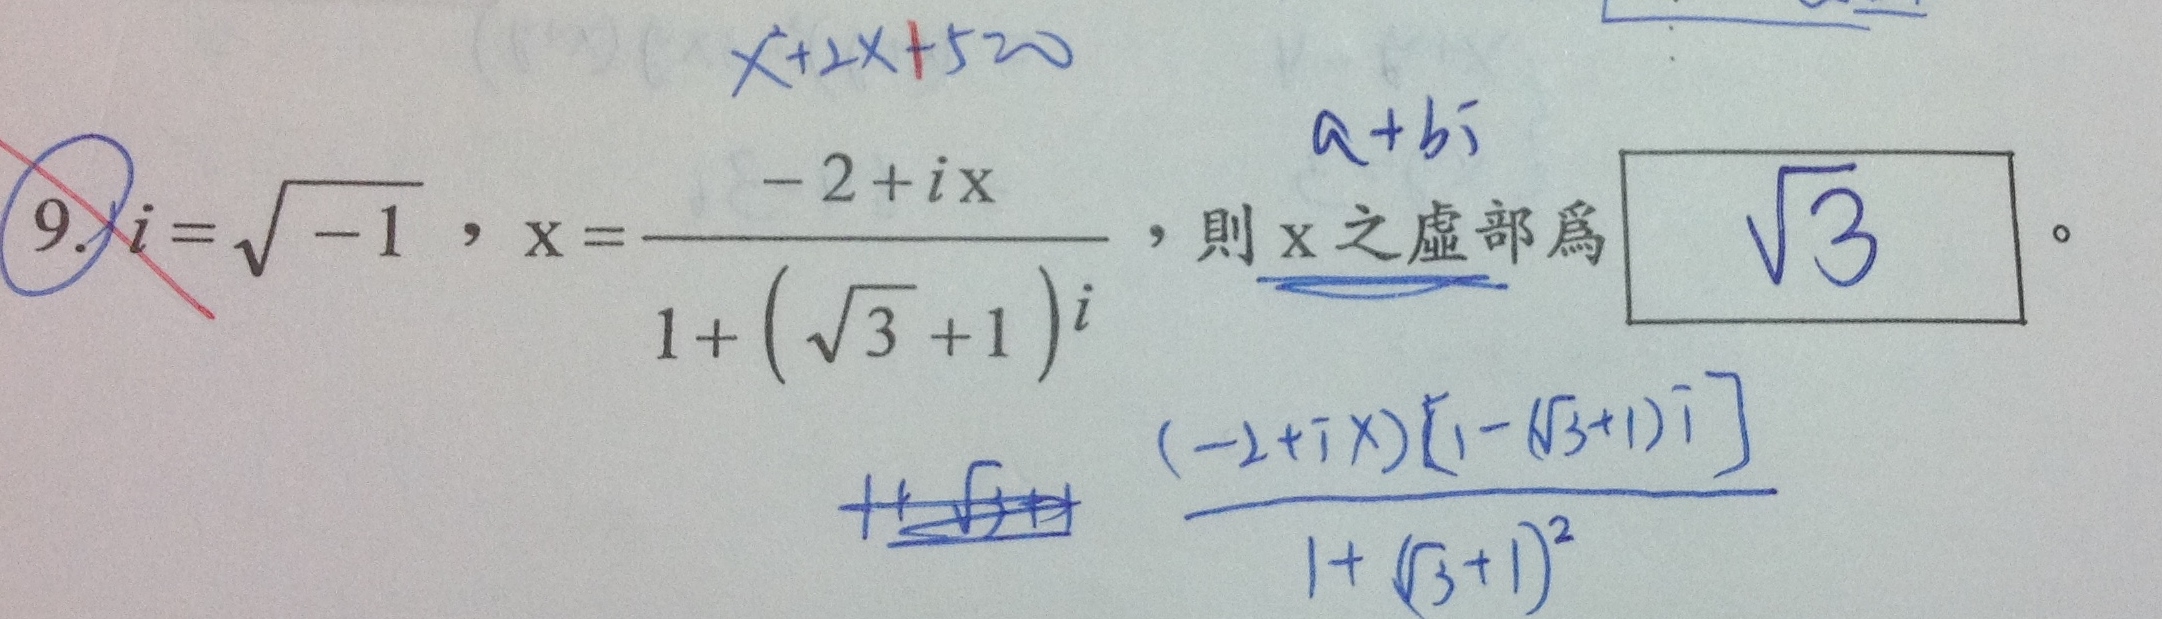 x²+2x+5=0
a+bi
9. i=√-1，x=(-2+ix)/(1+(√3+1)i)，則x之虛部爲 √3 。
(-2+ix)[1-(√3+1)i]
1+(√3+1)²